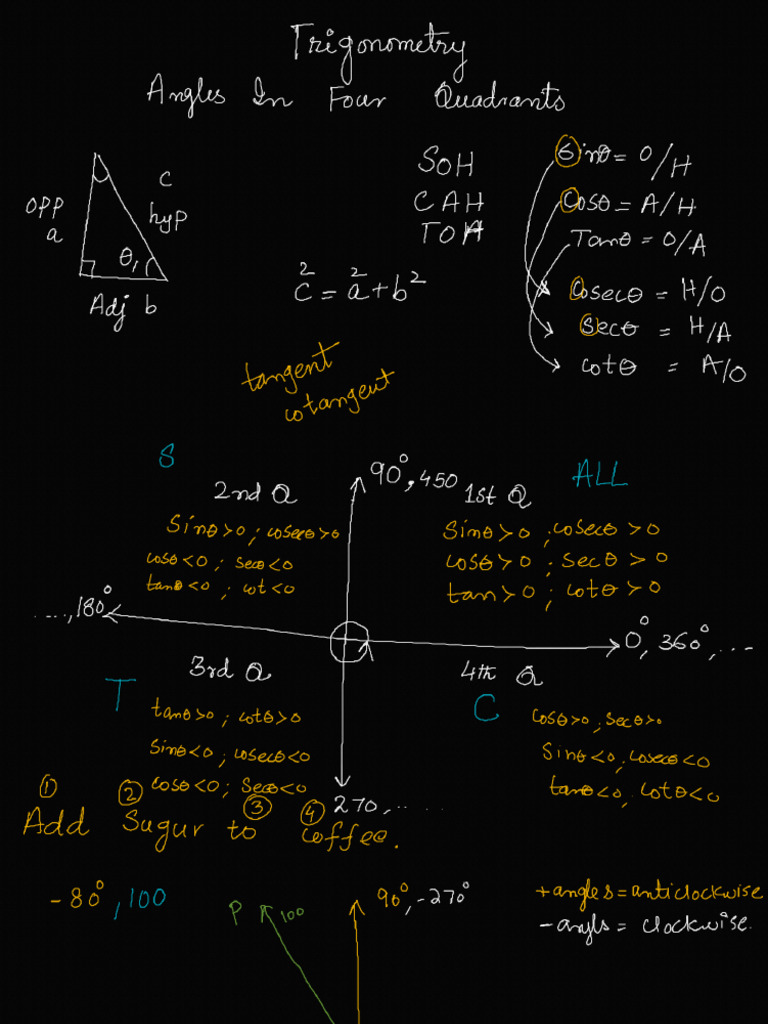 Trigonometry
Angles In Four Quadrants
opp
a
c
hyp
θ,
Adj b
SOH
CAH
TOA
c² = a² + b²
Sinθ = O/H
Cosθ = A/H
Tanθ = O/A
Cosecθ = H/O
Secθ = H/A
cotθ = A/O
tangent
cotangent
S
90°, 450
ALL
2nd Q
1st Q
Sinθ>0 ; cosecθ>0
cosθ<0 ; secθ<0
tanθ<0 ; cot<0
Sinθ>0 ; cosecθ>0
cosθ>0 ; secθ>0
tan>0 ; cotθ>0
...., 180°
0°, 360°, ...
3rd Q
4th Q
T
C
tanθ>0 ; cotθ>0
Sinθ<0 ; cosecθ<0
cosθ<0 ; Secθ<0
cosθ>0 ; secθ>0
Sinθ<0 ; cosecθ<0
tanθ<0, cotθ<0
270, .....
① ② ③ ④
Add Sugur to Coffee.
-80°, 100
P 100
90°, -270°
+angles = anticlockwise
-angls = clockwise.